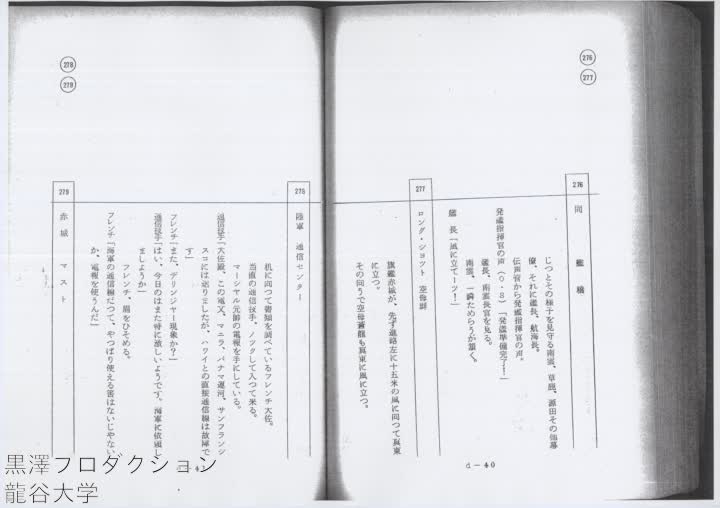 276
277
276
同 艦橋
じつとその様子を見守る南雲、草鹿、源田その他幕
僚、それに艦長、航海長。
伝声管から発艦指揮官の声。
発艦指揮官の声(O・S)「発艦準備完了!」
艦長、南雲長官を見る。
南雲、一瞬ためらうが頷く。
艦長「風に立てーッ!」
277
ロング・ショット 空母群
旗艦赤城が、先ず進路左に十五米の風に向つて真東
に立つ。
その向うで空母蒼龍も真東に風に立つ。
d-40
278
279
278
陸軍 通信センター
机に向つて書類を調べているフレンチ大佐。
当直の通信技手、ノックして入つて来る。
マーシャル元帥の電報を手にしている。
通信技手「大佐殿、この電文、マニラ、パナマ運河、サンフランシ
スコには送りましたが、ハワイとの直接通信線は故障で
す」
フレンチ「また、デリンジャー現象か?」
通信技手「はい、今日のはまた特に激しいようです。海軍に依頼し
ましようか」
フレンチ、眉をひそめる。
フレンチ「海軍の通信線だつて、やつぱり使える筈はないじやない
か、電報を使うんだ」
279
赤城 マスト
黒澤プロダクション
龍谷大学